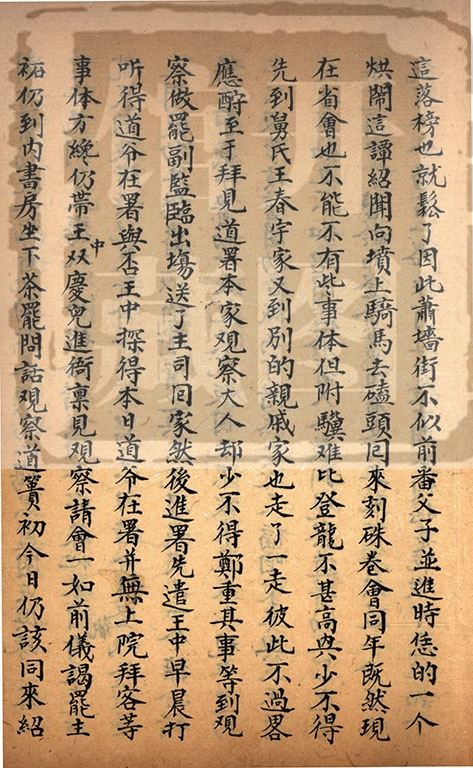 這落榜也就鬆了因此蕭墻街不似前番父子並進時恁的一个
烘鬧這譚紹聞向墳上騎馬去磕頭回來刻硃卷會同年既然現
在省會也不能不有此事体但附驥难比登龍不甚高興少不得
先到舅氏王春宇家又到別的親戚家也走了一走彼此不過畧
應酧至于拜見道署本家观察大人却少不得鄭重其事等到观
察做罷副監臨出塲送了主司回家然後進署先遣王中早晨打
听得道爷在署與否王中探得本日道爷在署并無上院拜客等
事体方纔仍帯王中双慶兒進衙禀見观察請會一如前儀謁罷主
祏仍到内書房坐下茶罷問話观察道簣初今日仍該同來紹